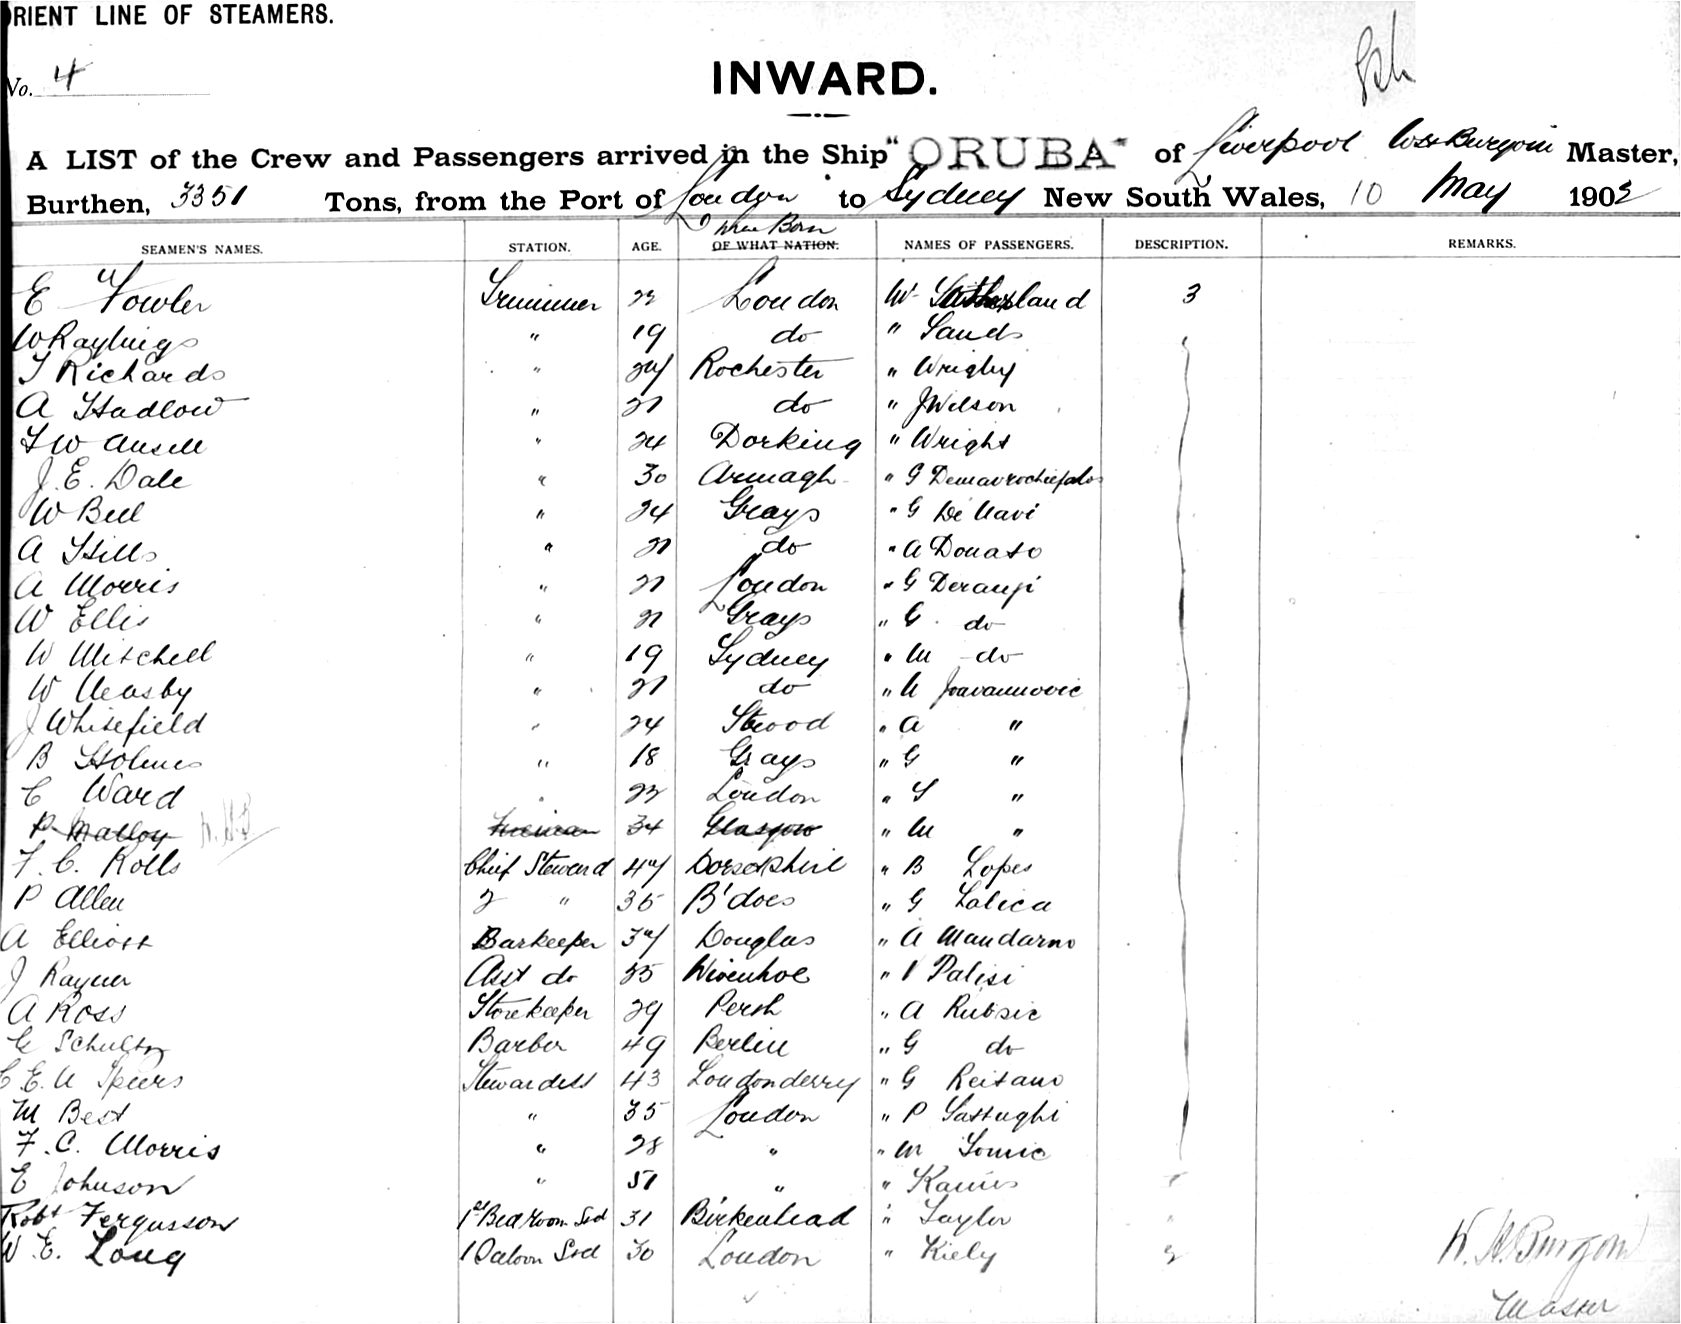 ORIENT LINE OF STEAMERS.
No. 4
INWARD.
A LIST of the Crew and Passengers arrived in the Ship "ORUBA" of Liverpool W H Burgoin Master,
Burthen, 3351 Tons, from the Port of London to Sydney New South Wales, 10 May 1902
Where Born
SEAMEN'S NAMES. STATION. AGE. OF WHAT NATION. NAMES OF PASSENGERS. DESCRIPTION. REMARKS.
E Fowler Trimmer 22 London Mr Sutherland 3
W Raylings " 19 do " Sands
T Richards " 24 Rochester " Wrigley
A Hadlow " 21 do " J Wilson
F W Ansell " 24 Dorking " Wright
J. E. Dale " 30 Armagh " G
W Bell " 24 Grays " G De
A Hills " 21 do " A Donato
A Morris " 21 London " G
W Ellis " 21 Grays " G do
W Mitchell " 19 Sydney " M do
W Neasby " 21 do " N Joavannovic
J Whitefield " 24 Strood " A "
B Holmes " 18 Grays " G "
C Ward " 22 London " S "
P Malloy Fireman 34 Glasgow " M "
F. C. Rolls Chief Steward 47 Dorsetshire " B Lopes
P Allen 2 " 35 B'does " G Lalica
A Elliott Barkeeper 37 Douglas " A Mandarno
J Rayner Asst do 25 Wivenhoe " V Palisi
A Ross Storekeeper 29 Perth " A Rubsic
C Schultz Barber 49 Berlin " G do
C E. A Speers Stewardess 43 Londonderry " G Reitano
M Best " 35 London " P
F. C. Morris " 28 " " M Tomic
E Johnson " 51 " "
Robt Fergusson 1st Bedroom Std 31 Birkenhead " Taylor "
W. E. Long 1 Saloon Std 30 London " Kiely 3
W. H. Burgoin
Master